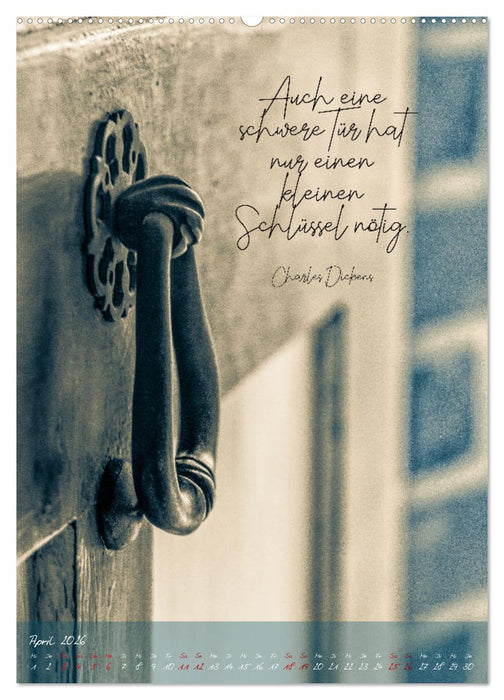 Auch eine
schwere Tür hat
nur einen
kleinen
Schlüssel nötig.
Charles Dickens
April 2026
Mi Do Fr Sa So Mo Di Mi Do Fr Sa So Mo Di Mi Do Fr Sa So Mo Di Mi Do Fr Sa So Mo Di Mi Do
1 2 3 4 5 6 7 8 9 10 11 12 13 14 15 16 17 18 19 20 21 22 23 24 25 26 27 28 29 30